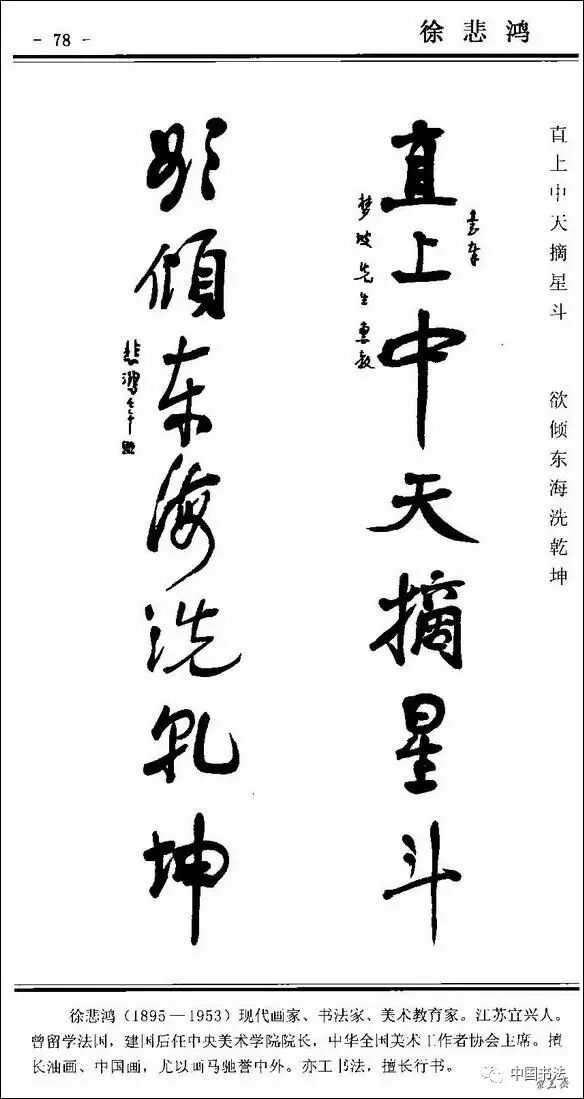 - 78 -
徐悲鸿
直上中天摘星斗 欲倾东海洗乾坤
直上中天摘星斗
梦坡先生惠教
欲倾东海洗乾坤
悲鸿
徐悲鸿(1895—1953)现代画家、书法家、美术教育家。江苏宜兴人。
曾留学法国,建国后任中央美术学院院长,中华全国美术工作者协会主席。擅
长油画、中国画,尤以画马驰誉中外。亦工书法,擅长行书。
中国书法